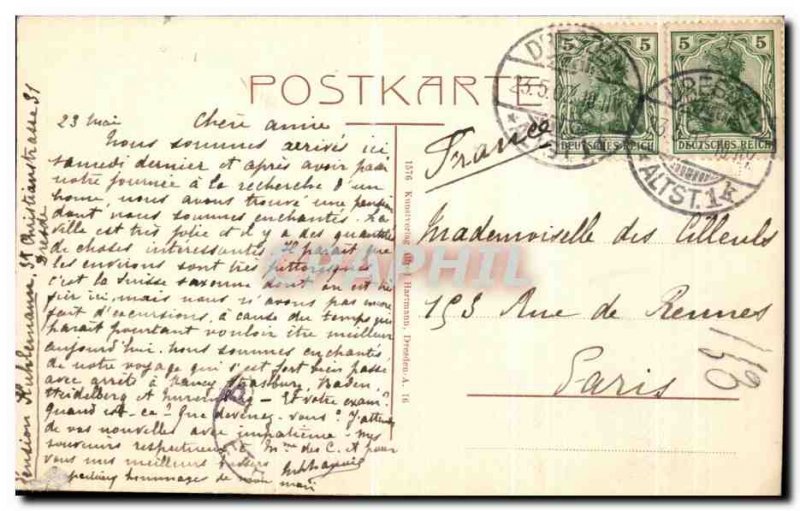 POSTKARTE
France
23 Mai Chère amie
Nous sommes arrivés ici
samedi dernier et après avoir passé
notre journée à la recherche d'un
home, nous avons trouvé une pension
dont nous sommes enchantés. La
ville est très jolie et il y a des quantités
de choses intéressantes. Il paraît que
les environs sont très pittoresques
c'est la Suisse saxonne dont on est
fier ici, mais nous n'avons pas encore
fait d'excursions, à cause du temps qui
paraît pourtant vouloir être meilleur
aujourd'hui. Nous sommes enchantés
de notre voyage qui s'est fort bien passé
avec arrêts à Nancy Strasburg, Baden,
Heidelberg et Nuremberg - Et votre examen?
Quand est-ce? Que devenez-vous? J'attends
de vos nouvelles avec impatience - mes
souvenirs respectueux à Mme des C. et pour
vous mes meilleurs
hommages de mon mari
Pension Kuhlemann, 31 Christianstrasse 31
Dresde
1576 Kunstverlag Hartmann, Dresden-A. 16
5 5
DEUTSCHES REICH
5 5
DEUTSCHES REICH
DRESDEN
23.5.07
DRESDEN
ALTST. 14
Mademoiselle des Cilleuls
153 Rue de Rennes
Paris
DELCAMPHIL